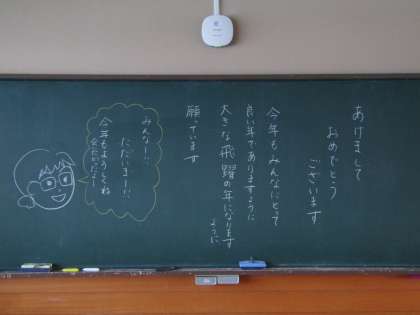 あけまして
おめでとう
ございます
今年もみんなにとって
良い年でありますように
大きな飛躍の年になります
ように
願っています
みんなー!!
ただいまー!!
今年もよろしくね
会いたかったよー